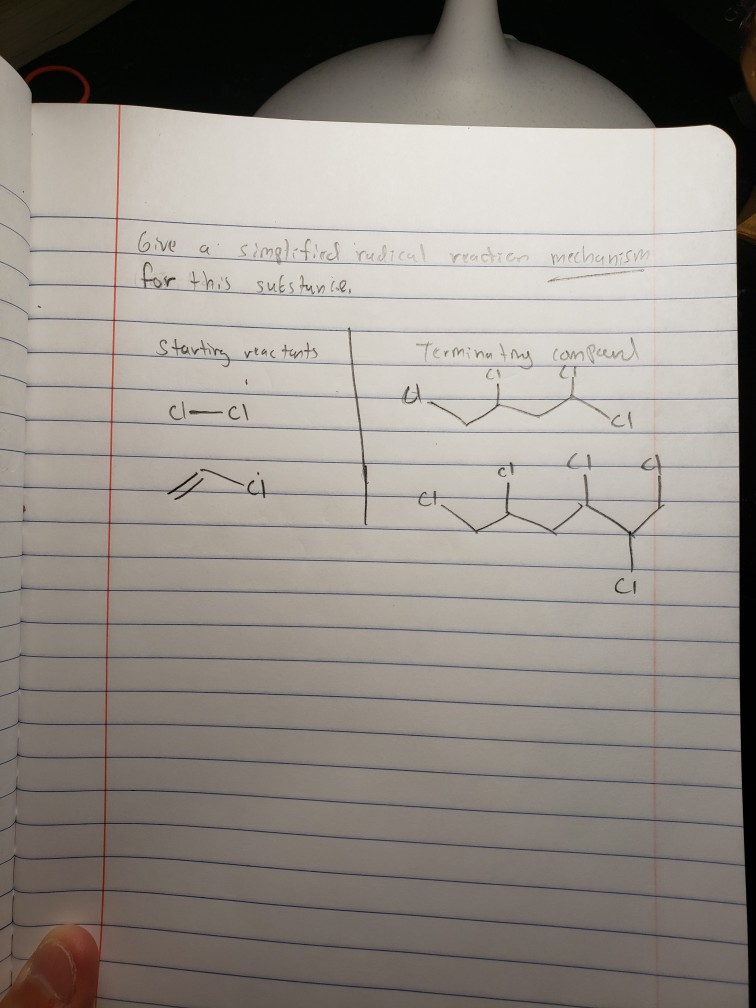 Give a simplified radical reaction mechanism
for this substance.
Starting reactants
Terminating compound
Cl Cl
Cl—Cl
Cl
Cl
Cl
Cl Cl Cl
Cl
Cl